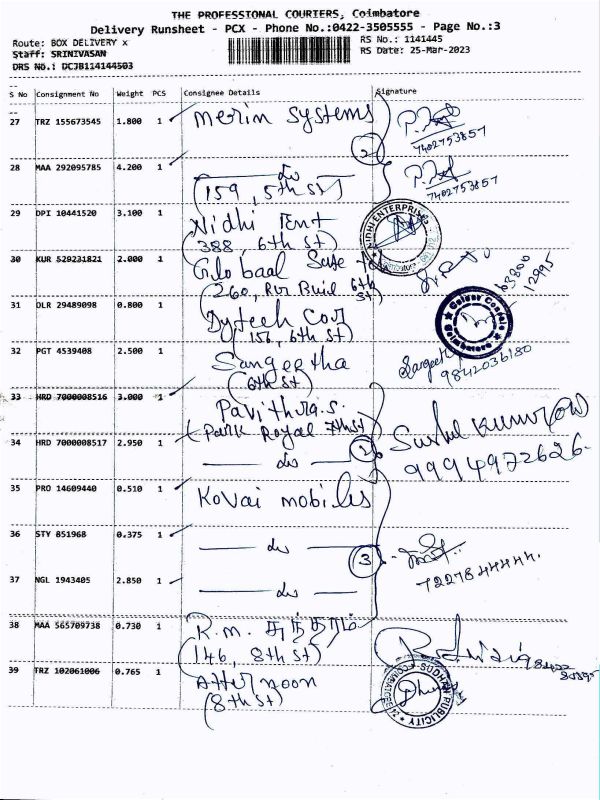 THE PROFESSIONAL COURIERS, Coimbatore
Delivery Runsheet - PCX - Phone No.:0422-3505555 - Page No.:3
Route: BOX DELIVERY x
RS No.: 1141445
Staff: SRINIVASAN
RS Date: 25-Mar-2023
DRS No.: DCJB114144503
S No Consignment No Weight PCS Consignee Details Signature
27 TRZ 155673545 1.800 1 Merin Systems
7402753857
2
28 MAA 292095785 4.200 1 do
(159, 5th St)
7402753857
29 DPI 10441520 3.100 1 Nidhi Ent
(388, 6th St)
NIDHI ENTERPRISES
30 KUR 529231821 2.000 1 Globaal Safe
(260, 6th St)
63800
12995
31 DLR 29489098 0.800 1 Dytech Cor
(156, 6th St)
Coimbatore
32 PGT 4539408 2.500 1 Sangeetha
(6th St)
Sangeeth
9842036180
33 HRD 7000008516 3.000 1 Pavithra.s.
(Park Royal 7th St)
34 HRD 7000008517 2.950 1 do
2
9994972626
35 PRO 14609440 0.510 1 Kovai mobiles
36 STY 851968 0.375 1 do
3
7227844444.
37 NGL 1943405 2.850 1 do
38 MAA 565709738 0.730 1 R.m.
(146, 8th St)
39 TRZ 102061006 0.765 1 Afternoon
(8th St)
SUDHAN PUBLICITY